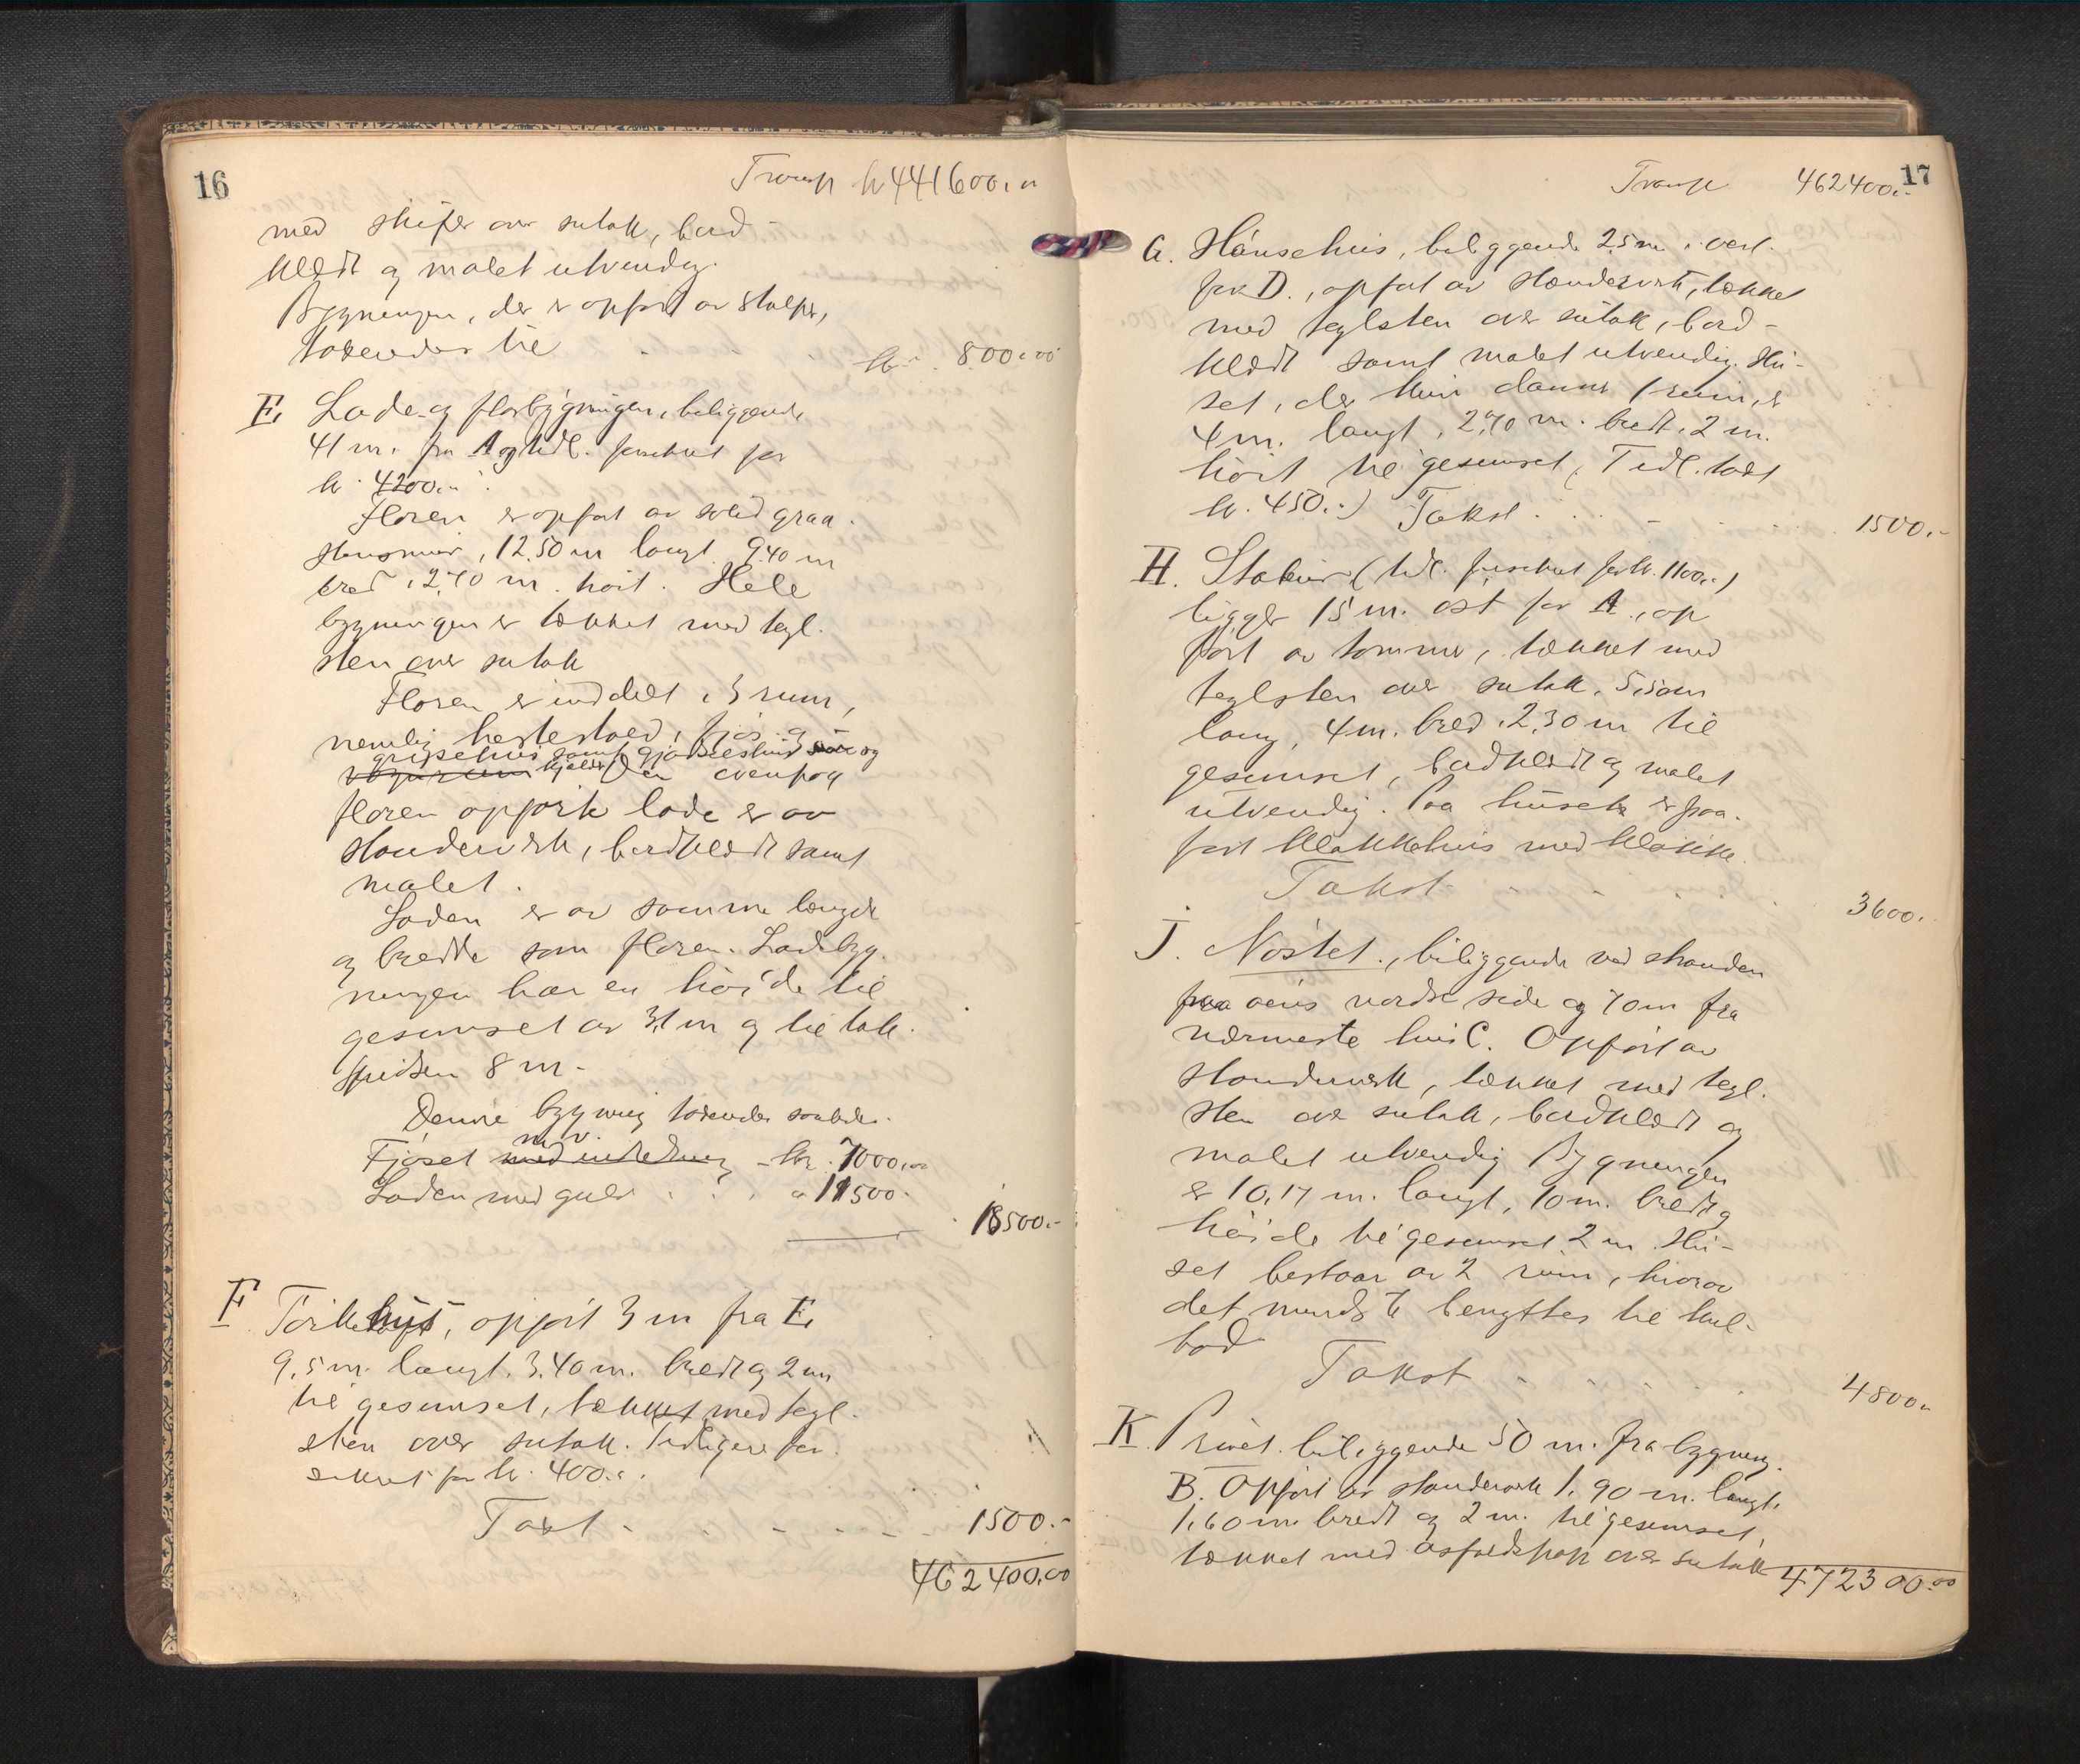 16
Transp kr 441600.00
med skifer over sutak, bord-
klædt og malet utvendig.
Bygningen, der er opført av stolper,
taxeredes til kr. 800.00
E. Lade- og florbygningen, beliggende
41 m. fra A og tidl. forsikret for
kr. 4200.-
Floren er opført av solid graa-
stensmur, 12.50 m langt 9.40 m
bred, 2.70 m. høit. Hele
bygningen er tækket med tegl-
sten over sutak
Floren er inddelt i 3 rum,
nemlig hestestald, fjøs og
grisehus samt gjødselshus og
kjelder. Den ovenpaa
floren opførte lade er av
standerverk, bordklædt samt
malet.
Laden er av samme længde
og bredde som floren. Ladebyg-
ningen har en høide til
gesimset av 3,1 m og til tak-
spidsen 8 m.
Denne bygning taxeredes saaledes.
m. v.
Fjøset med indredning - kr. 7000.00
Laden med gulv . . . " 11500.-
18500.-
F Törkehus, opført 3 m fra E,
9,5 m. langt. 3.40 m. bredt og 2 m
til gesimset, tækket med tegl-
sten over sutak. Tidligere for-
sikret for kr. 400.-.
Taxt - - - - 1500.-
462400.00
17
Transp 462400.-
G. Hönsehus, beliggende 25 m i vest
for D., opført av standerverk, tækket
med teglsten over sutak, bord-
klædt samt malet utvendig. Hu-
set, der kun danner 1 rum, er
4 m. langt, 2.70 m. bredt, 2 m.
höit til gesimset, (Tidl. takst
kr. 450.-) Takst . . . 1500.-
H. Stabur (tidl. forsikret for kr. 1100.-)
ligger 15 m. öst for A., op
fört av tömmer, tækket med
teglsten over sutak, 5,50 m
lang, 4 m. bred, 2,30 m til
gesimset, bordklædt og malet
utvendig. Paa huset er paa-
fört klokkehus med klokke.
Takst - - - 3600.-
J. Nöstet, beliggende ved stranden
paa øens nordre side og 70 m fra
nærmeste hus C. Opført av
standerverk, tækket med tegl-
sten over sutak, bordklædt og
malet utvendig Bygningen
er 10,17 m. langt, 10 m. bredt og
höide til gesimset 2 m. Hu-
set bestaar av 2 rum, hvorav
det mindste benyttes til kul-
bod
Takst . . . . . 4800.-
K. Privet beliggende 50 m. fra bygning
B. Opført av standerverk 1,90 m. langt,
1,60 m. bredt og 2 m. til gesimset,
tækket med asfaldtpap over sutak
472300.00